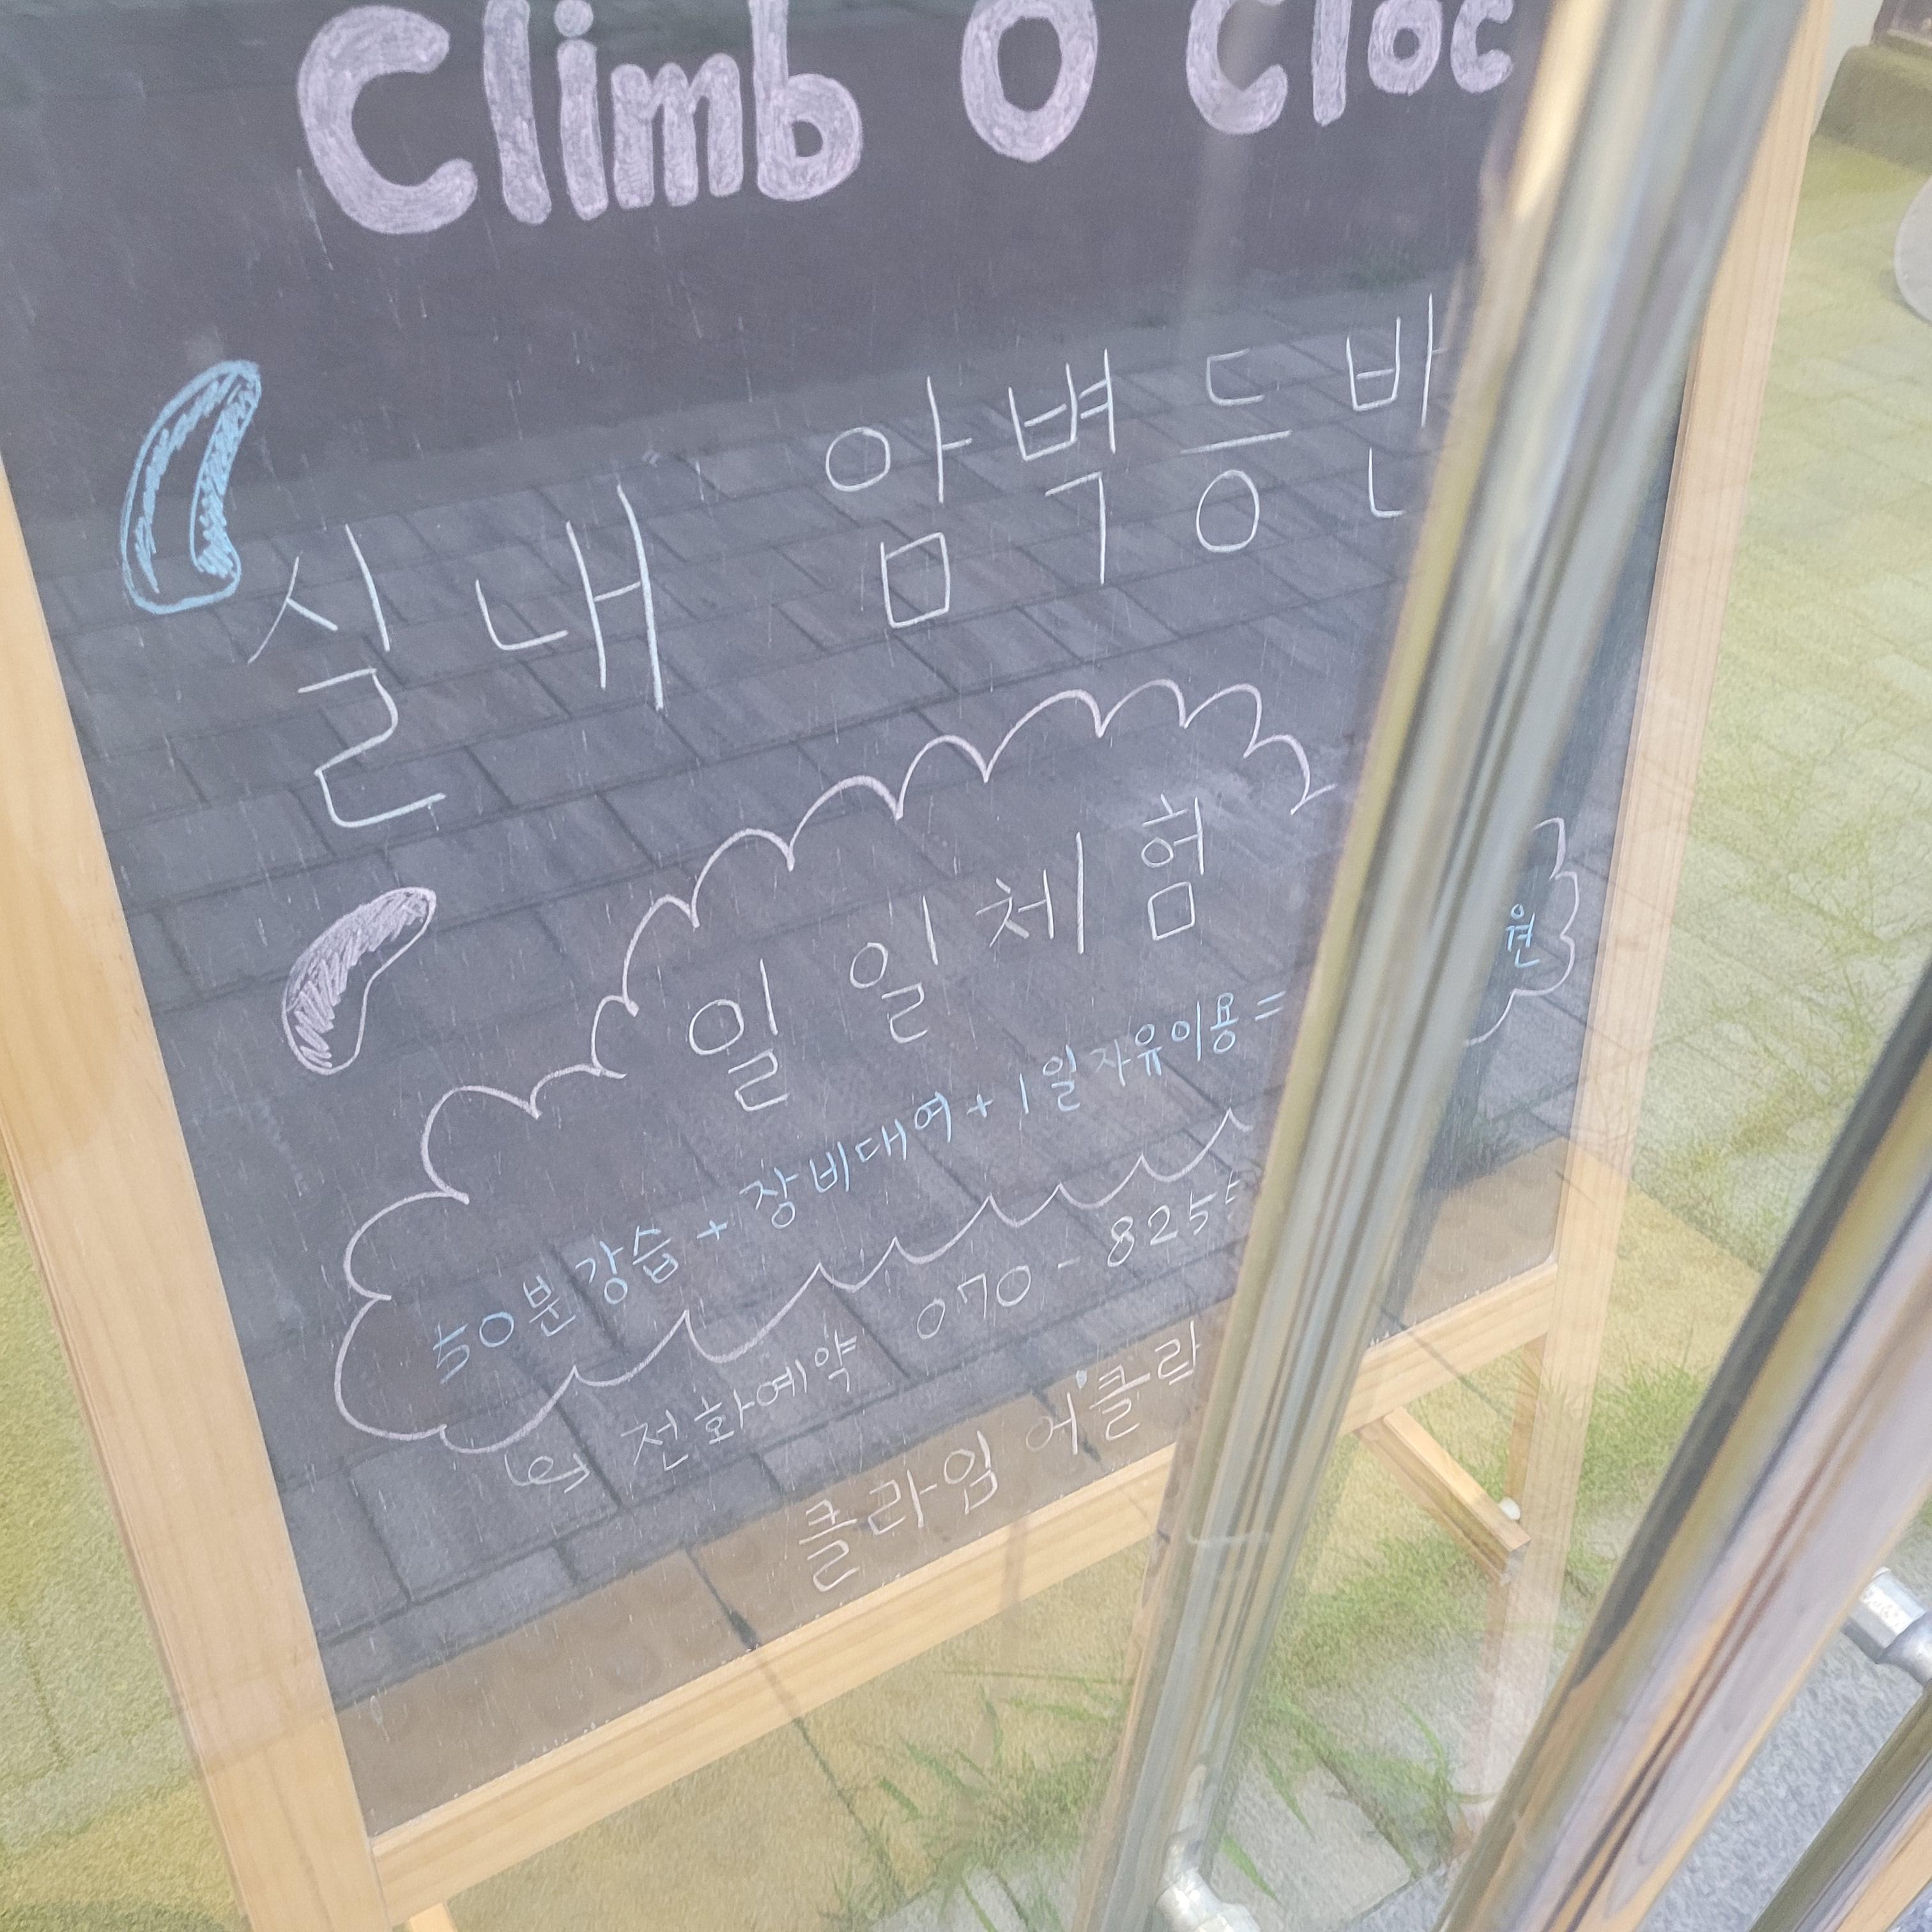 Climb O Cloc
실내 암벽등반
일일체험
50분강습+장비대여+1일자유이용= 원
전화예약 070-8255
클라임 어클락